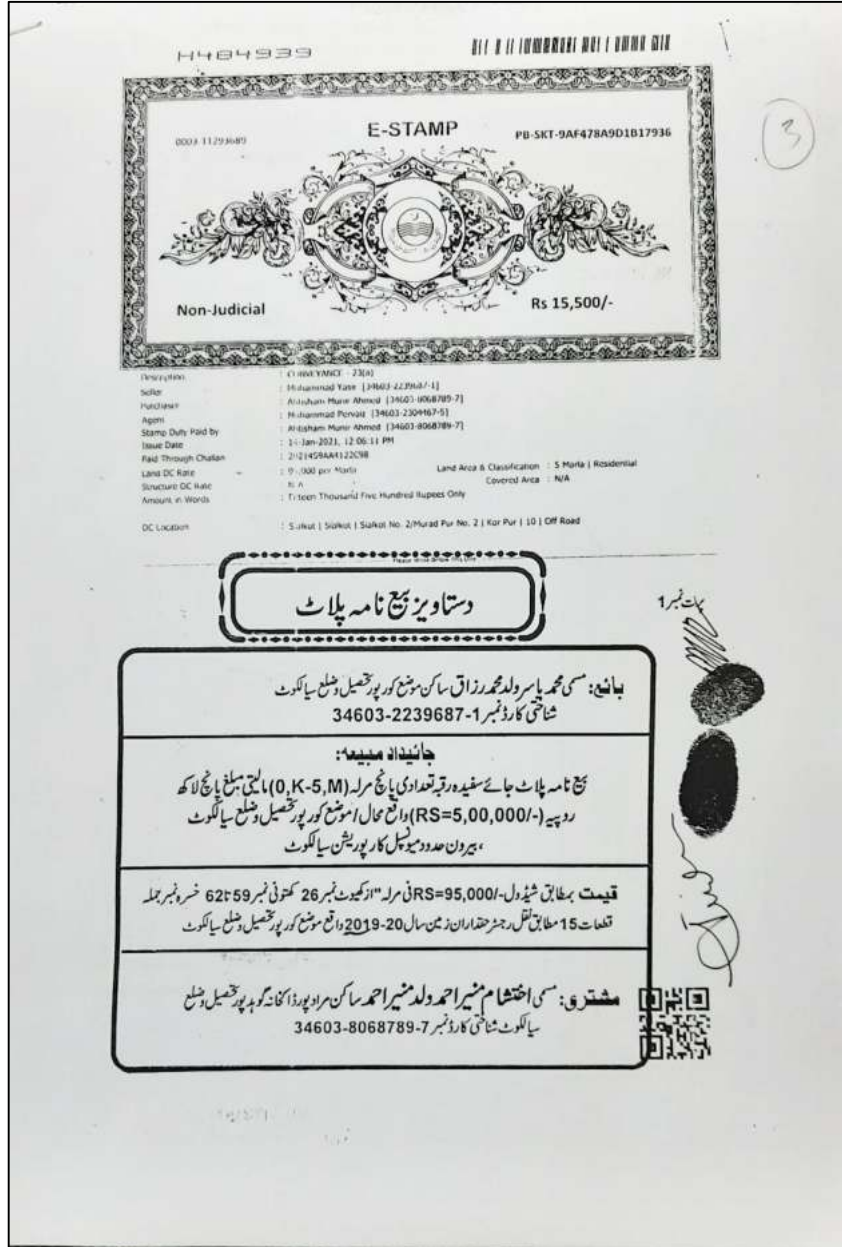 H484939
3
E-STAMP
0003-11293689
PB-SKT-9AF478A9D1B17936
Non-Judicial
Rs 15,500/-
Description : CONVEYANCE - 23(a)
Seller : Muhammad Yasir [34603-2239687-1]
Purchaser : Ahtisham Munir Ahmed [34603-8068789-7]
Agent : Muhammad Pervaiz [34603-2304467-5]
Stamp Duty Paid by : Ahtisham Munir Ahmed [34603-8068789-7]
Issue Date : 14-Jan-2021, 12:06:11 PM
Paid Through Challan : 2021459AA4122C98
Land DC Rate : 95,000 per Marla Land Area & Classification : 5 Marla | Residential
Structure DC Rate : N/A Covered Area : N/A
Amount in Words : Fifteen Thousand Five Hundred Rupees Only
DC Location : Sialkot | Sialkot | Sialkot No. 2/Murad Pur No. 2 | Kor Pur | 10 | Off Road
Please Write Below This Line
دستاویز بیع نامہ پلاٹ
نمبر 1
بائع: مسمی محمد یاسر ولد محمد رزاق ساکن موضع کورپور تحصیل و ضلع سیالکوٹ
شناختی کارڈ نمبر 34603-2239687-1
جائیداد مبیعہ:
بیع نامہ پلاٹ جائے سفیدہ رقبہ تعدادی پانچ مرلہ (0,K-5,M) مالیتی مبلغ پانچ لاکھ
روپیہ (RS=5,00,000/-) واقع محال / موضع کورپور تحصیل و ضلع سیالکوٹ
، بیرون حدود میونسپل کارپوریشن سیالکوٹ
قیمت بمطابق شیڈول RS=95,000/- فی مرلہ "از کھیوٹ نمبر 26 کھتونی نمبر 59 تا 62 خسرہ نمبر جملہ
قطعات 15 مطابق نقل رجسٹر حقداران زمین سال 2019-20 واقع موضع کورپور تحصیل و ضلع سیالکوٹ
مشتری: مسمی احتشام منیر احمد ولد منیر احمد ساکن مراد پور ڈاکخانہ گوہد پور تحصیل و ضلع
سیالکوٹ شناختی کارڈ نمبر 34603-8068789-7